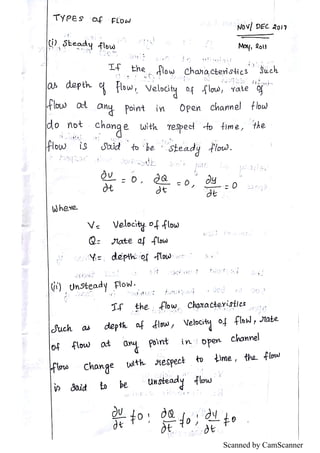 TYPES OF FLOW
NOV/ DEC 2017
(i) Steady flow
May, 2011
If the flow characteristics such
as depth of flow, Velocity of flow, rate of
flow at any point in open channel flow
do not change with respect to time, the
flow is said to be steady flow.
∂v/∂t = 0, ∂Q/∂t = 0, ∂y/∂t = 0
Where
V= Velocity of flow
Q= rate of flow
Y= depth of flow
(ii) Unsteady Flow.
If the flow characteristics
such as depth of flow, Velocity of flow, rate
of flow at any point in open channel
flow change with respect to time, the flow
is said to be unsteady flow
∂v/∂t ≠ 0; ∂Q/∂t ≠ 0; ∂y/∂t ≠ 0
Scanned by CamScanner